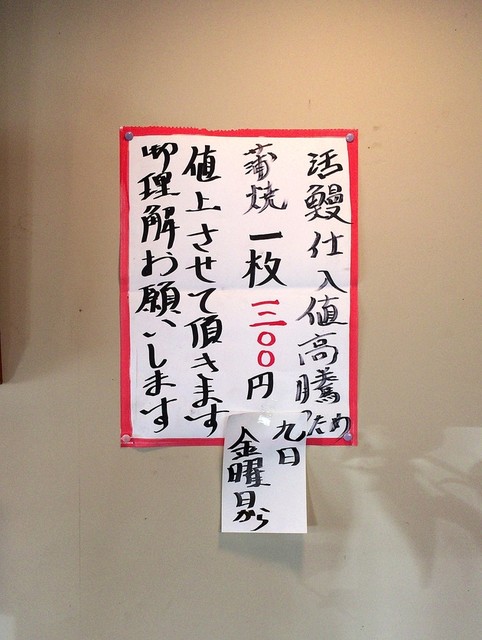 活鰻仕入値高騰ため
蒲焼一枚一三〇〇円
値上させて頂きます
御理解お願いします
九日
金曜日から